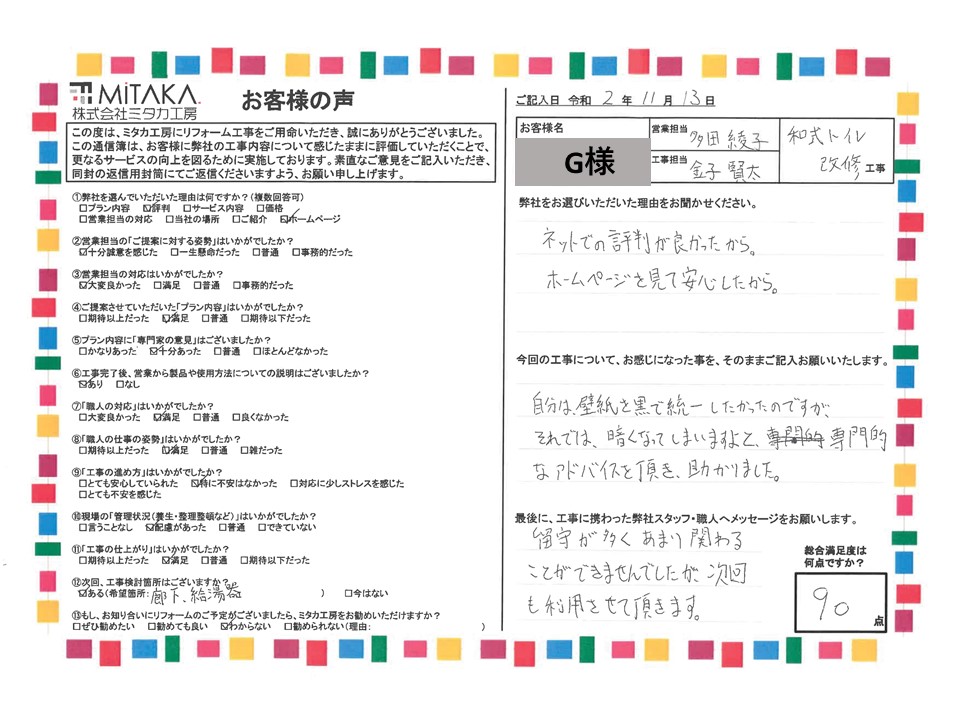 MiTAKA.
株式会社ミタカ工房
お客様の声
この度は、ミタカ工房にリフォーム工事をご用命いただき、誠にありがとうございました。
この通信簿は、お客様に弊社の工事内容について感じたままに評価していただくことで、
更なるサービスの向上を図るために実施しております。素直なご意見をご記入いただき、
同封の返信用封筒にてご返信くださいますよう、お願い申し上げます。
①弊社を選んでいただいた理由は何ですか?(複数回答可)
□プラン内容 ☑評判 □サービス内容 □価格
□営業担当の対応 □当社の場所 □ご紹介 ☑ホームページ
②営業担当の「ご提案に対する姿勢」はいかがでしたか?
☑十分誠意を感じた □一生懸命だった □普通 □事務的だった
③営業担当の対応はいかがでしたか?
☑大変良かった □満足 □普通 □事務的だった
④ご提案させていただいた「プラン内容」はいかがでしたか?
□期待以上だった ☑満足 □普通 □期待以下だった
⑤プラン内容に「専門家の意見」はございましたか?
□かなりあった ☑十分あった □普通 □ほとんどなかった
⑥工事完了後、営業から製品や使用方法についての説明はございましたか?
☑あり □なし
⑦「職人の対応」はいかがでしたか?
□大変良かった ☑満足 □普通 □良くなかった
⑧「職人の仕事の姿勢」はいかがでしたか?
□期待以上だった ☑満足 □普通 □雑だった
⑨「工事の進め方」はいかがでしたか?
□とても安心していられた ☑特に不安はなかった □対応に少しストレスを感じた
□とても不安を感じた
⑩現場の「管理状況(養生・整理整頓など)」はいかがでしたか?
□言うことなし ☑配慮があった □普通 □できていない
⑪「工事の仕上がり」はいかがでしたか?
□期待以上だった ☑満足 □普通 □期待以下だった
⑫次回、工事検討箇所はございますか?
☑ある(希望箇所: 廊下、給湯器 ) □今はない
⑬もし、お知り合いにリフォームのご予定がございましたら、ミタカ工房をお勧めいただけますか?
□ぜひ勧めたい □勧めても良い ☑わからない □勧められない(理由: )
ご記入日 令和 2 年 11 月 13 日
お客様名
G様
営業担当 多田 綾子
工事担当 金子 賢太
和式トイレ
改修 工事
弊社をお選びいただいた理由をお聞かせください。
ネットでの評判が良かったから。
ホームページを見て安心したから。
今回の工事について、お感じになった事を、そのままご記入お願いいたします。
自分は、壁紙を黒で統一したかったのですが、
それでは、暗くなってしまいますよと、専門的 専門的
なアドバイスを頂き、助かりました。
最後に、工事に携わった弊社スタッフ・職人へメッセージをお願いします。
留守が多く あまり関わる
ことができませんでしたが、次回
も利用させて頂きます。
総合満足度は
何点ですか?
90 点